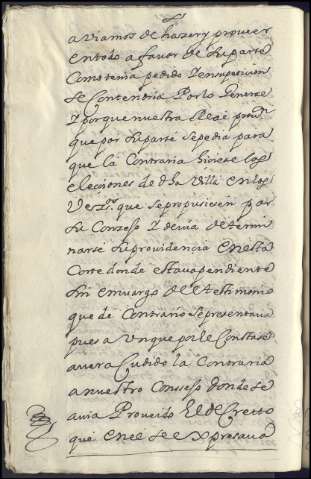 aviamos de hazer y proveer
en todo a favor de su parte
Como tenia pedido I en su peticion
se Contenoria Por lo General
I porque nuestra Real provon
que por su parte se pedia para
que la Contraria hiciese las
elecciones de dha Villa en los
Vezos que se propusiesen por
su Conzejo I devia determi
narse su providencia en esta
Corte donde estava pendiente
sin embargo del testimonio
que de Contrario se presentava
pues aunque por el Constase
avera Cudido la Contraria
a nuestro Consejo donde se
avia Proveido El decreto
que en el se expresava